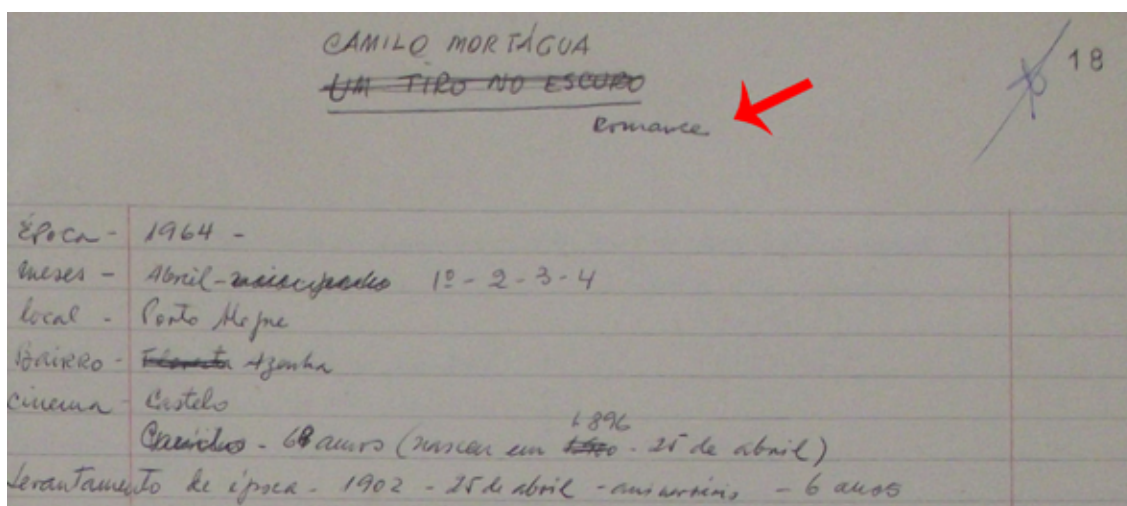 CAMILO MORTÁGUA
18
UM TIRO NO ESCURO
Romance
Época - 1964 -
meses - Abril - 1º - 2 - 3 - 4
local - Porto Alegre
Bairro - Floresta Azenha
cinema - Castelo
1896
Camilo - 68 anos (nasceu em - 25 de abril)
Levantamento de época - 1902 - 25 de abril - aniversário - 6 anos